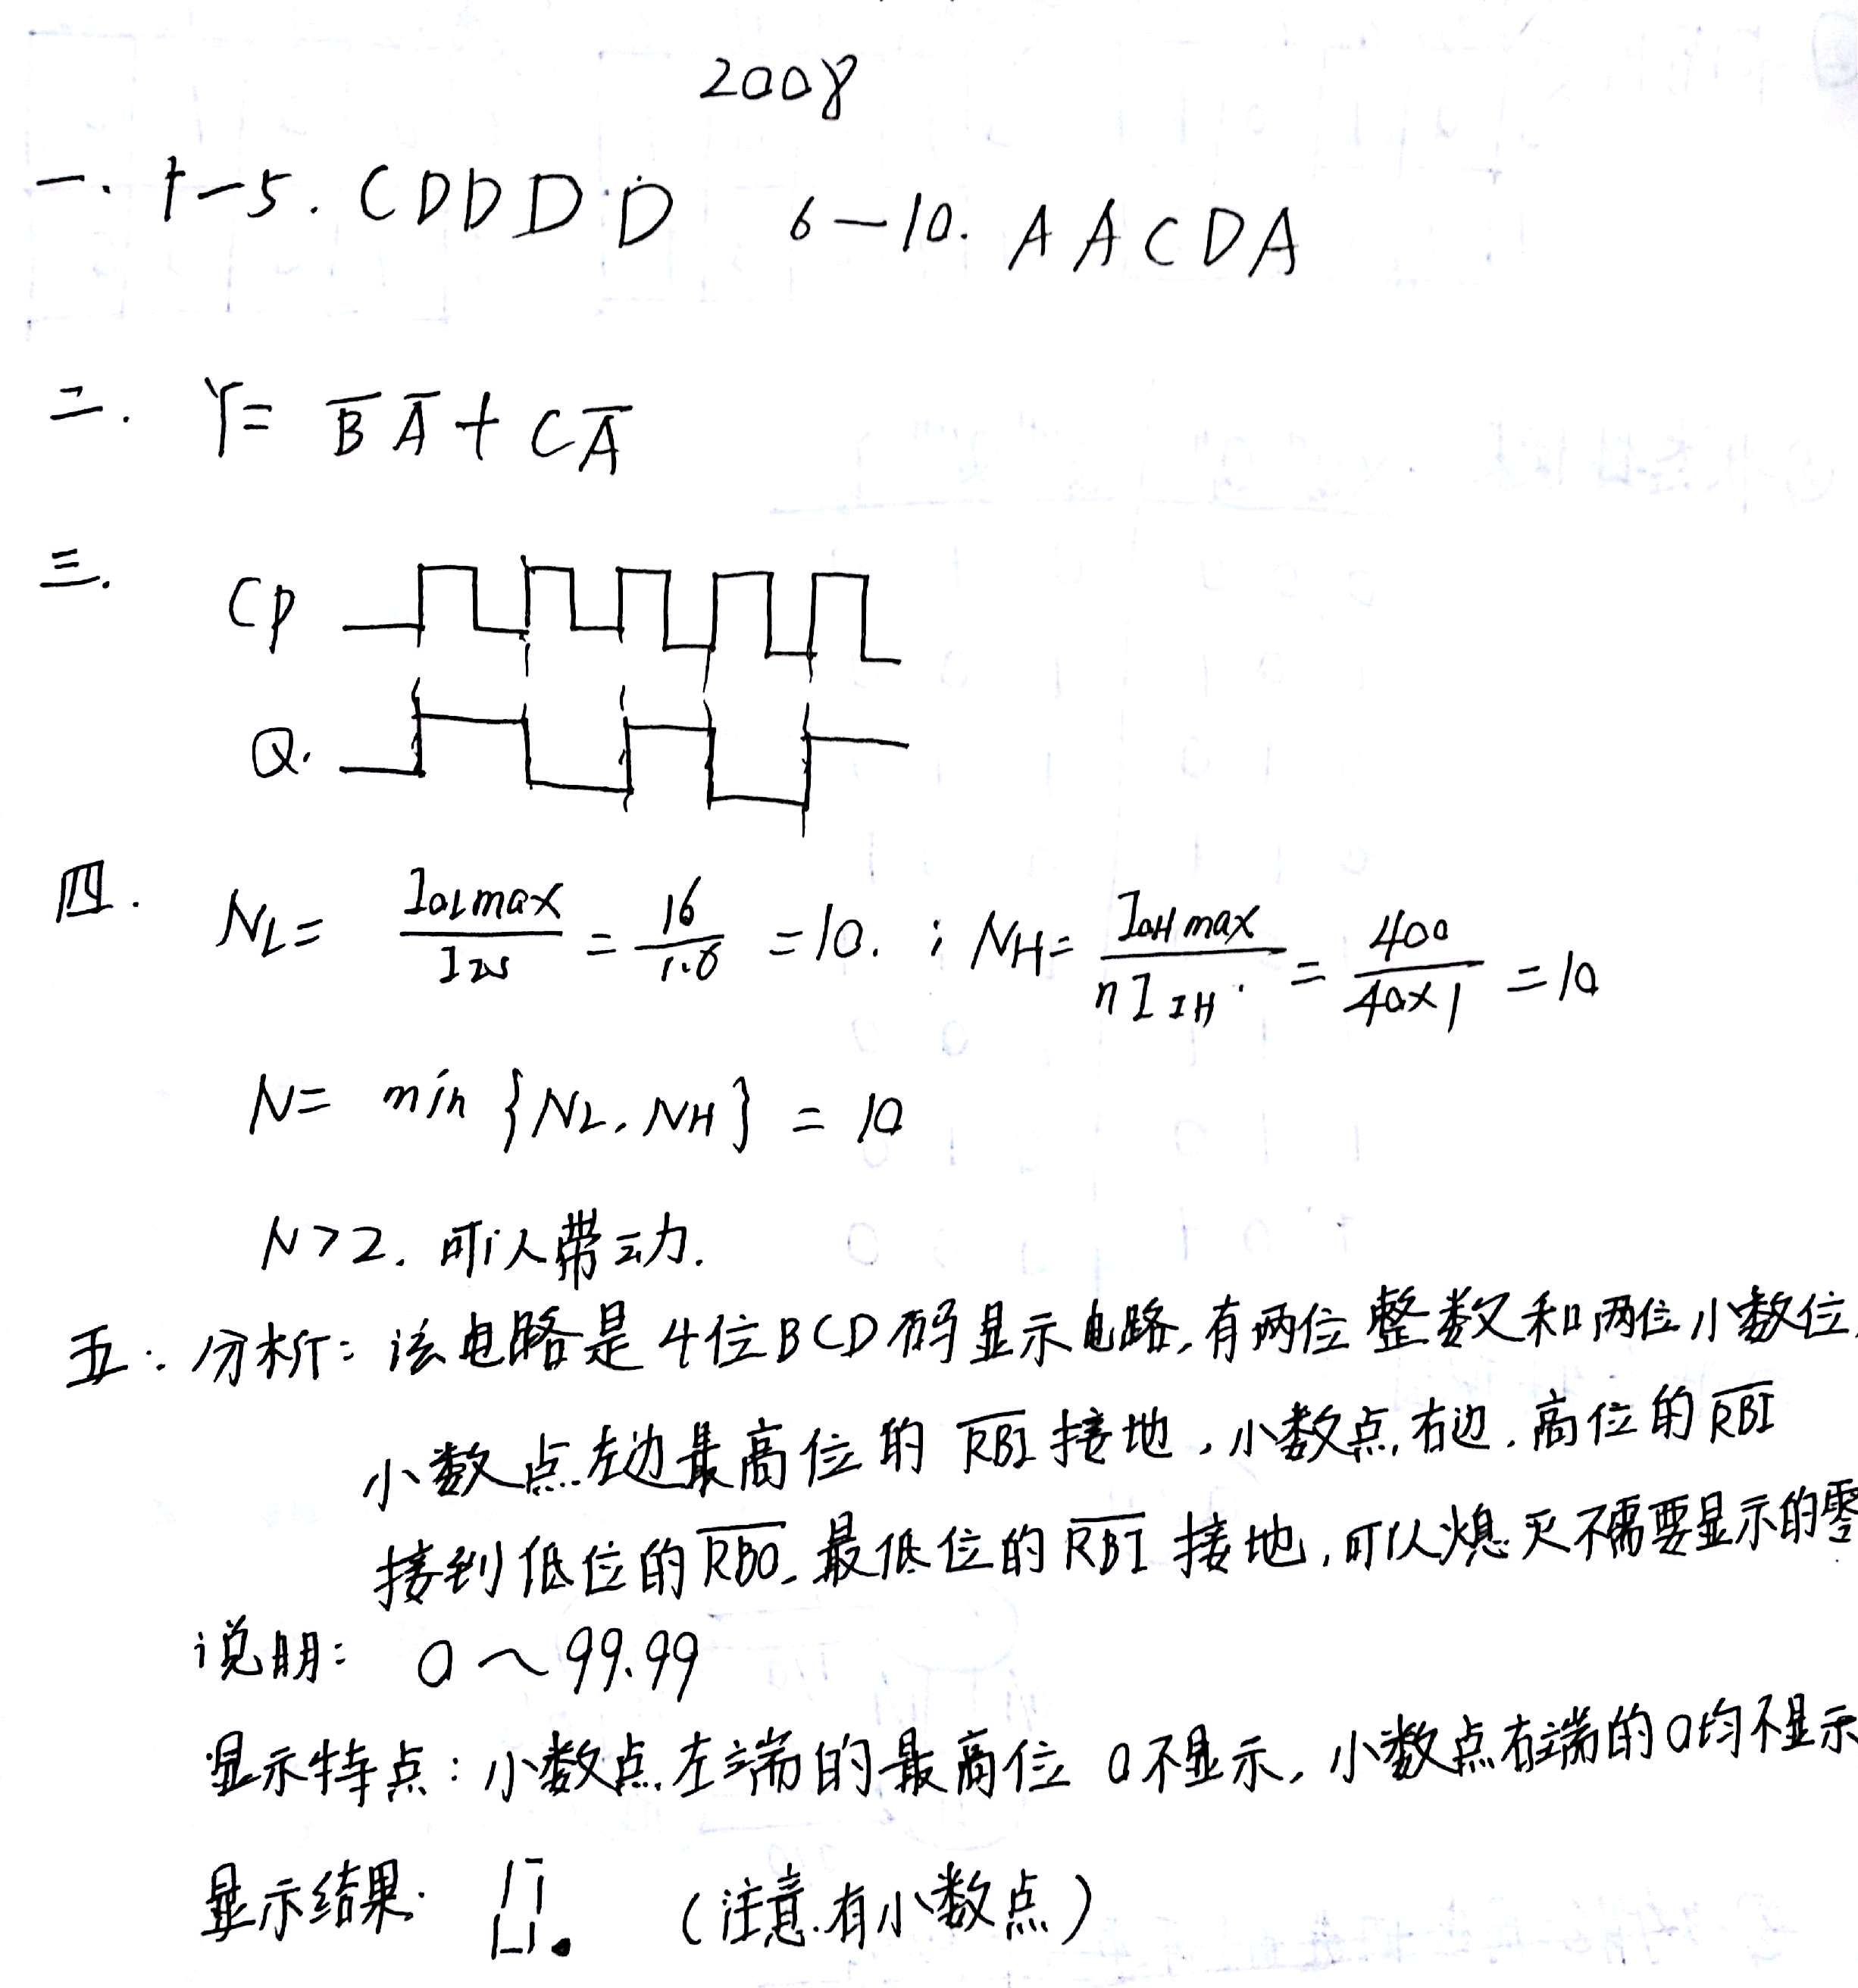 2008
一. 1-5. CDDDD 6-10. AACDA
二. Y= B̅ A̅ + C A̅
三. CP
Q.
四. NL= IOLmax/IIS = 16/1.6 =10. ; NH= IOHmax/nIIH = 400/40×1 =10
N= min {NL, NH} = 10
N>2. 可以带动.
五. 分析: 该电路是4位BCD码显示电路,有两位整数和两位小数位,
小数点左边最高位的 R̅B̅I̅ 接地,小数点右边,高位的 R̅B̅I̅
接到低位的 R̅B̅O̅,最低位的 R̅B̅I̅ 接地,可以熄灭不需要显示的零
说明: 0~99.99
显示特点: 小数点左端的最高位 0不显示,小数点右端的0均不显示
显示结果. 0. (注意.有小数点)